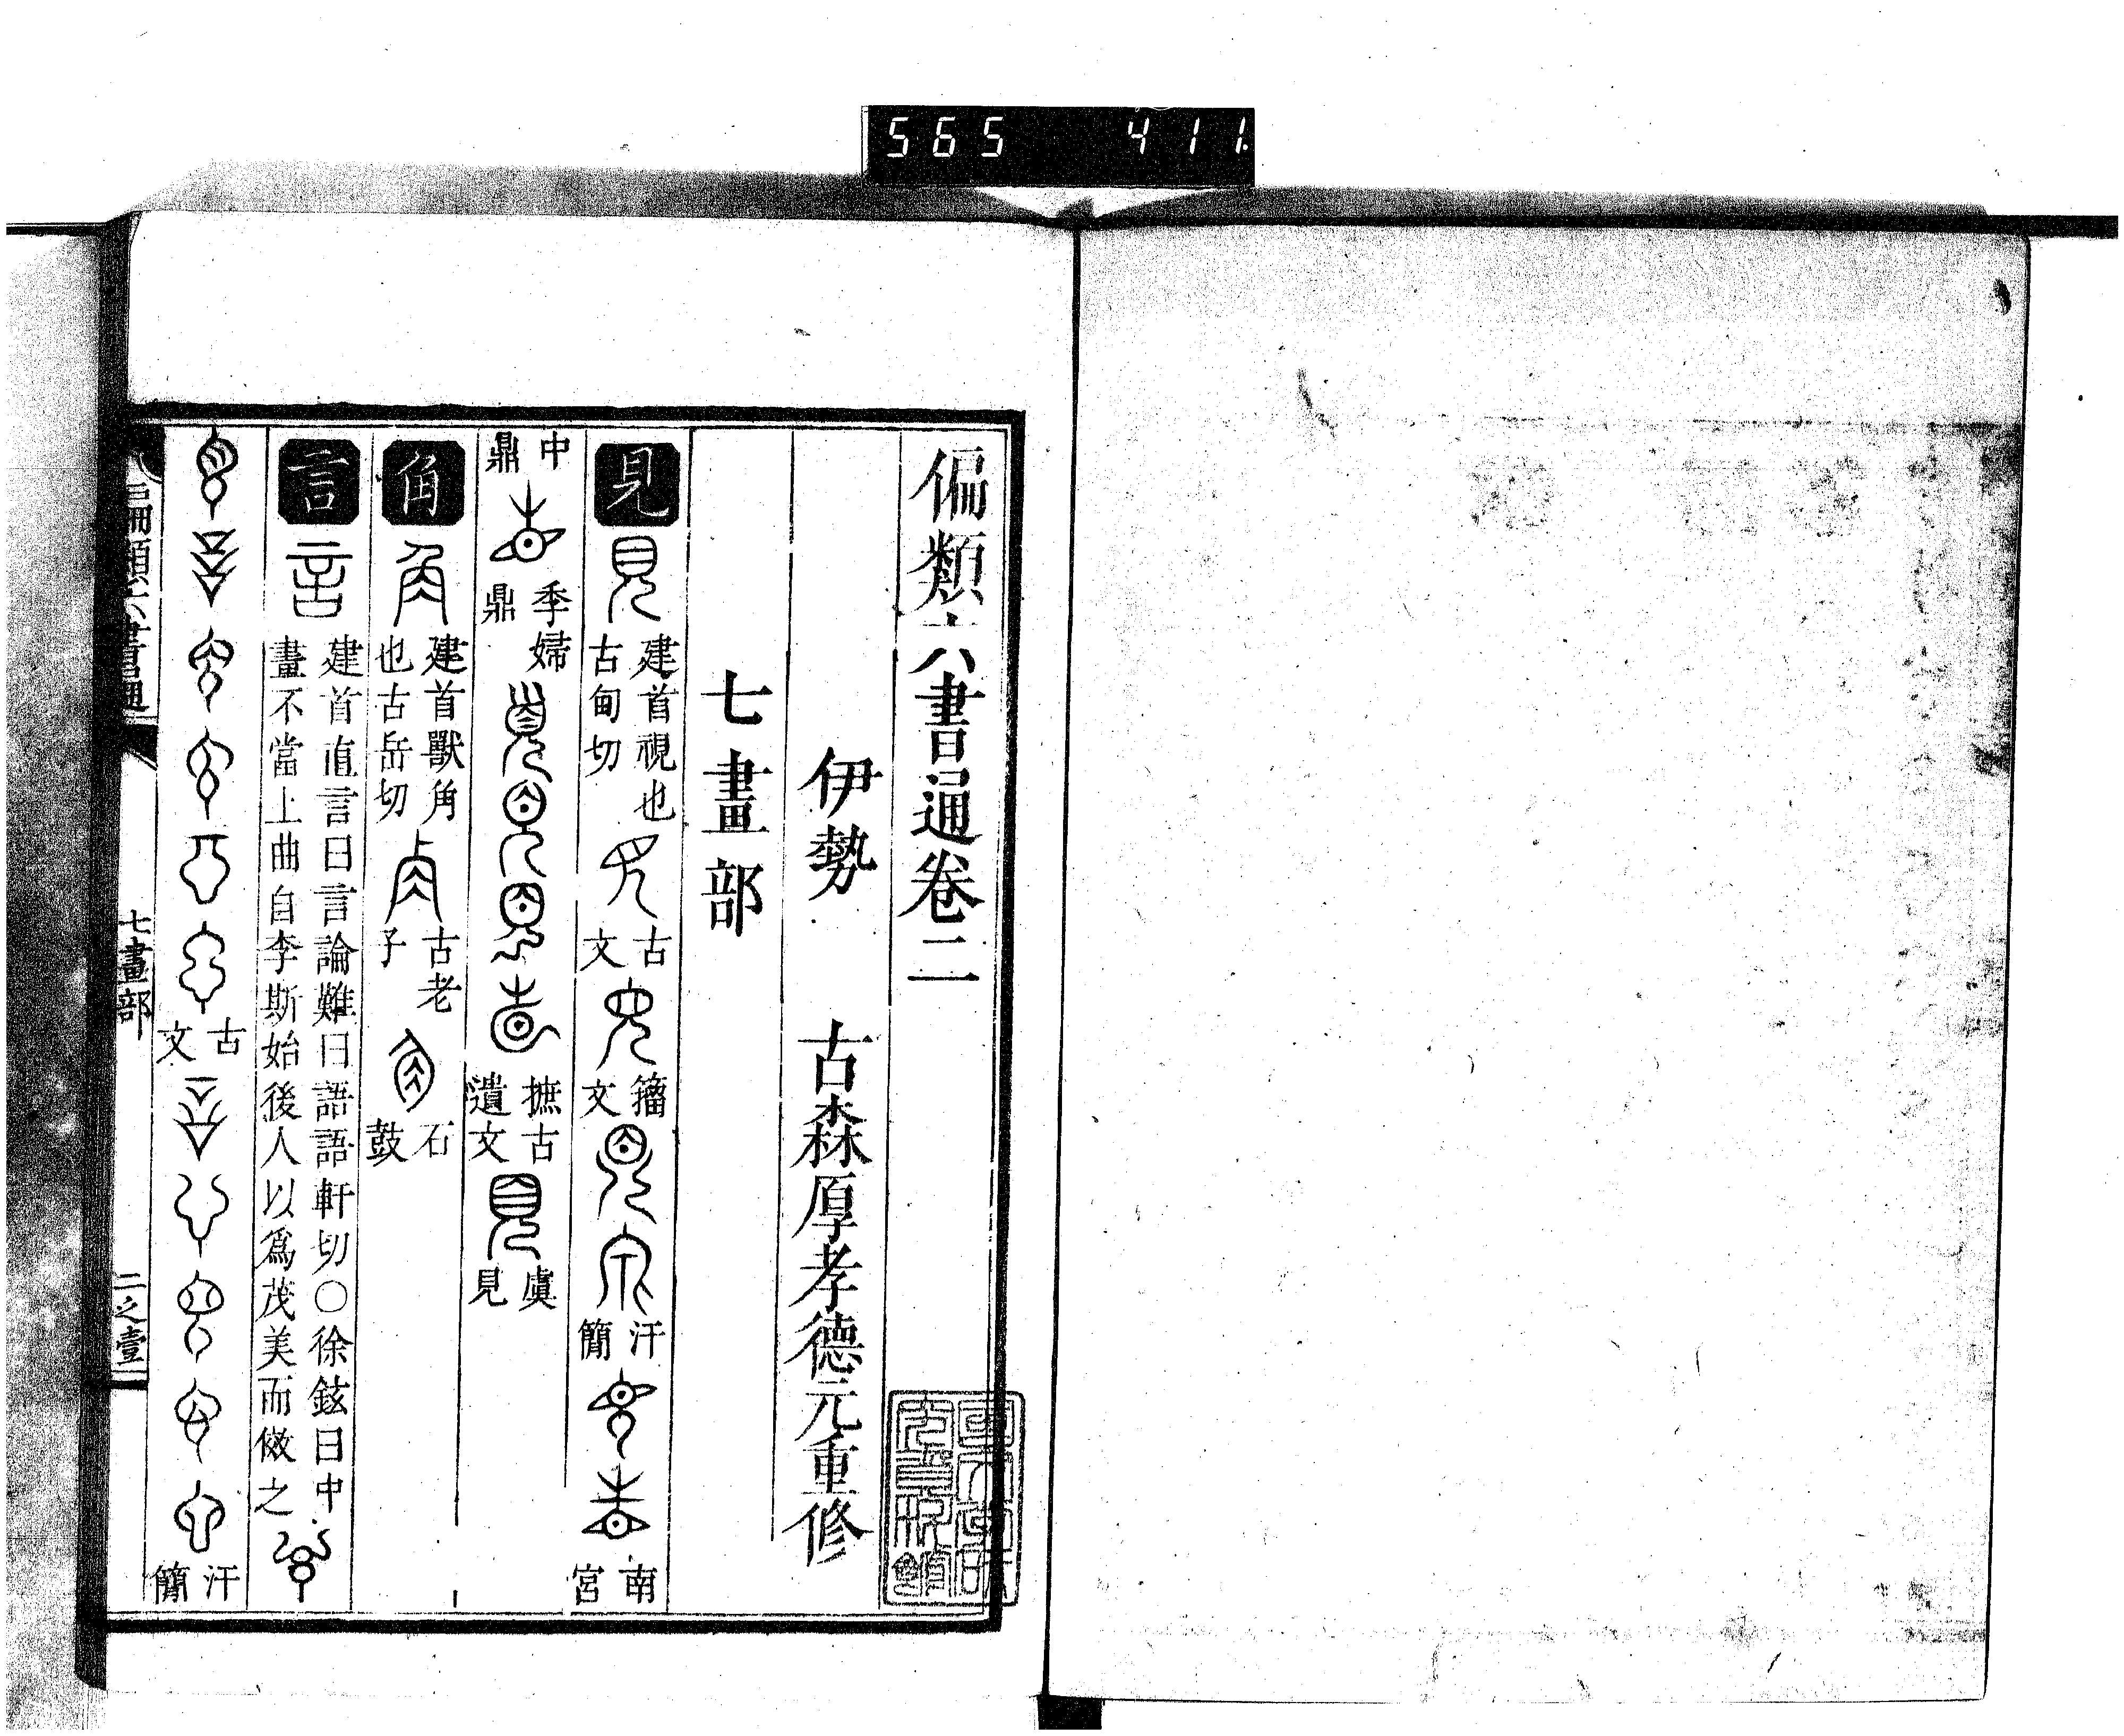 565 411
偏類六書通卷二
伊勢 古森厚孝德元重修
七畫部
見 建首視也古甸切 古文 籀文 汗簡 南宮
中鼎 季婦鼎 摭古遺文 虞見
角 建首獸角也古岳切 古老子 石鼓
言 建首直言曰言論難曰語語軒切○徐鉉曰中畫不當上曲自李斯始後人以爲茂美而倣之
古文 汗簡
偏類六書通 七畫部 二之壹